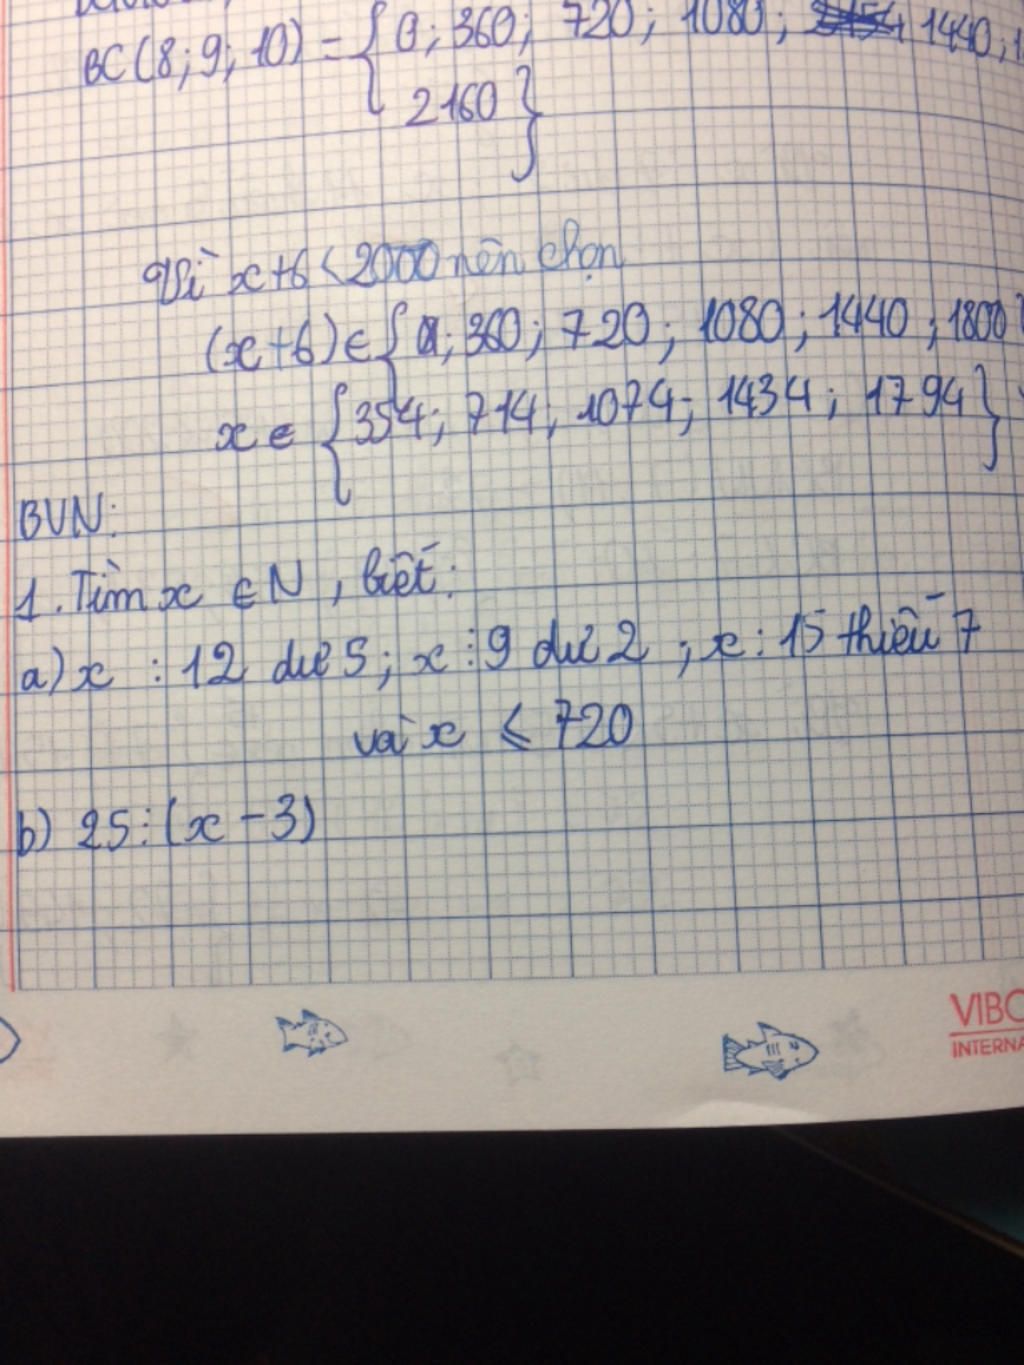 BC(8;9;10) = { 0; 360; 720; 1080; 1440;
2160 }
Vì x+6 < 2000 nên chọn
(x+6) ∈ { 0; 360; 720; 1080; 1440; 1800
x ∈ { 354; 714; 1074; 1434; 1794 }
BVN:
1. Tìm x ∈ N, biết:
a) x : 12 dư 5; x : 9 dư 2; x : 15 thiếu 7
và x ≤ 720
b) 25 ⋮ (x - 3)
VIBO
INTERNA